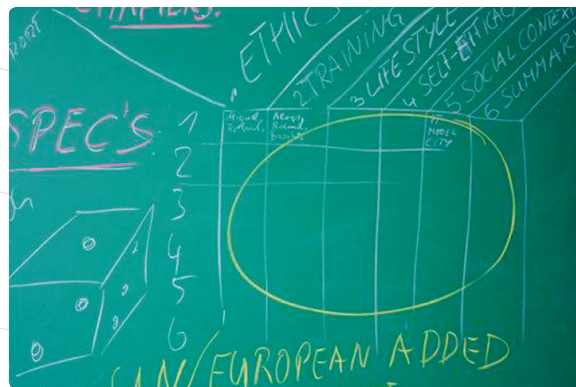 CHAPTERS:
ETHICS
2 TRAINING
3 LIFESTYLE
4 SELF-EFFICACY
5 SOCIAL CONTEXT
6 SUMMARY
SPEC'S
1
MODEL
CITY
2
3
4
5
6
/EUROPEAN ADDED